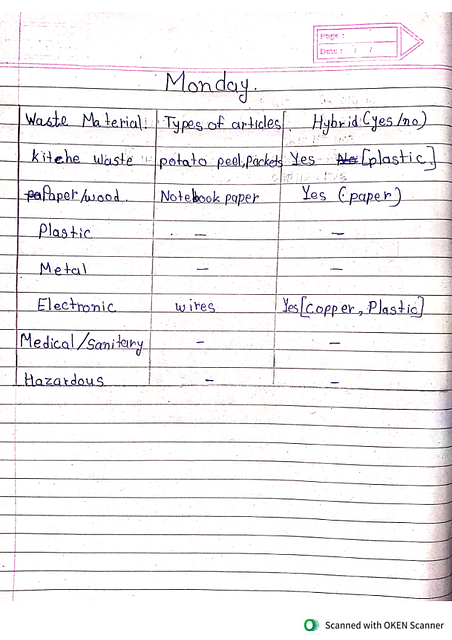 Page :
Date : / /
Monday.
Waste Material. Types of articles. Hybrid (yes/no)
kitche waste potato peel, Packets Yes No [plastic.]
paPaper/wood. Notebook paper Yes (paper)
Plastic — —
Metal — —
Electronic wires Yes [Copper, Plastic]
Medical/Sanitary - —
Hazardous - —
Scanned with OKEN Scanner